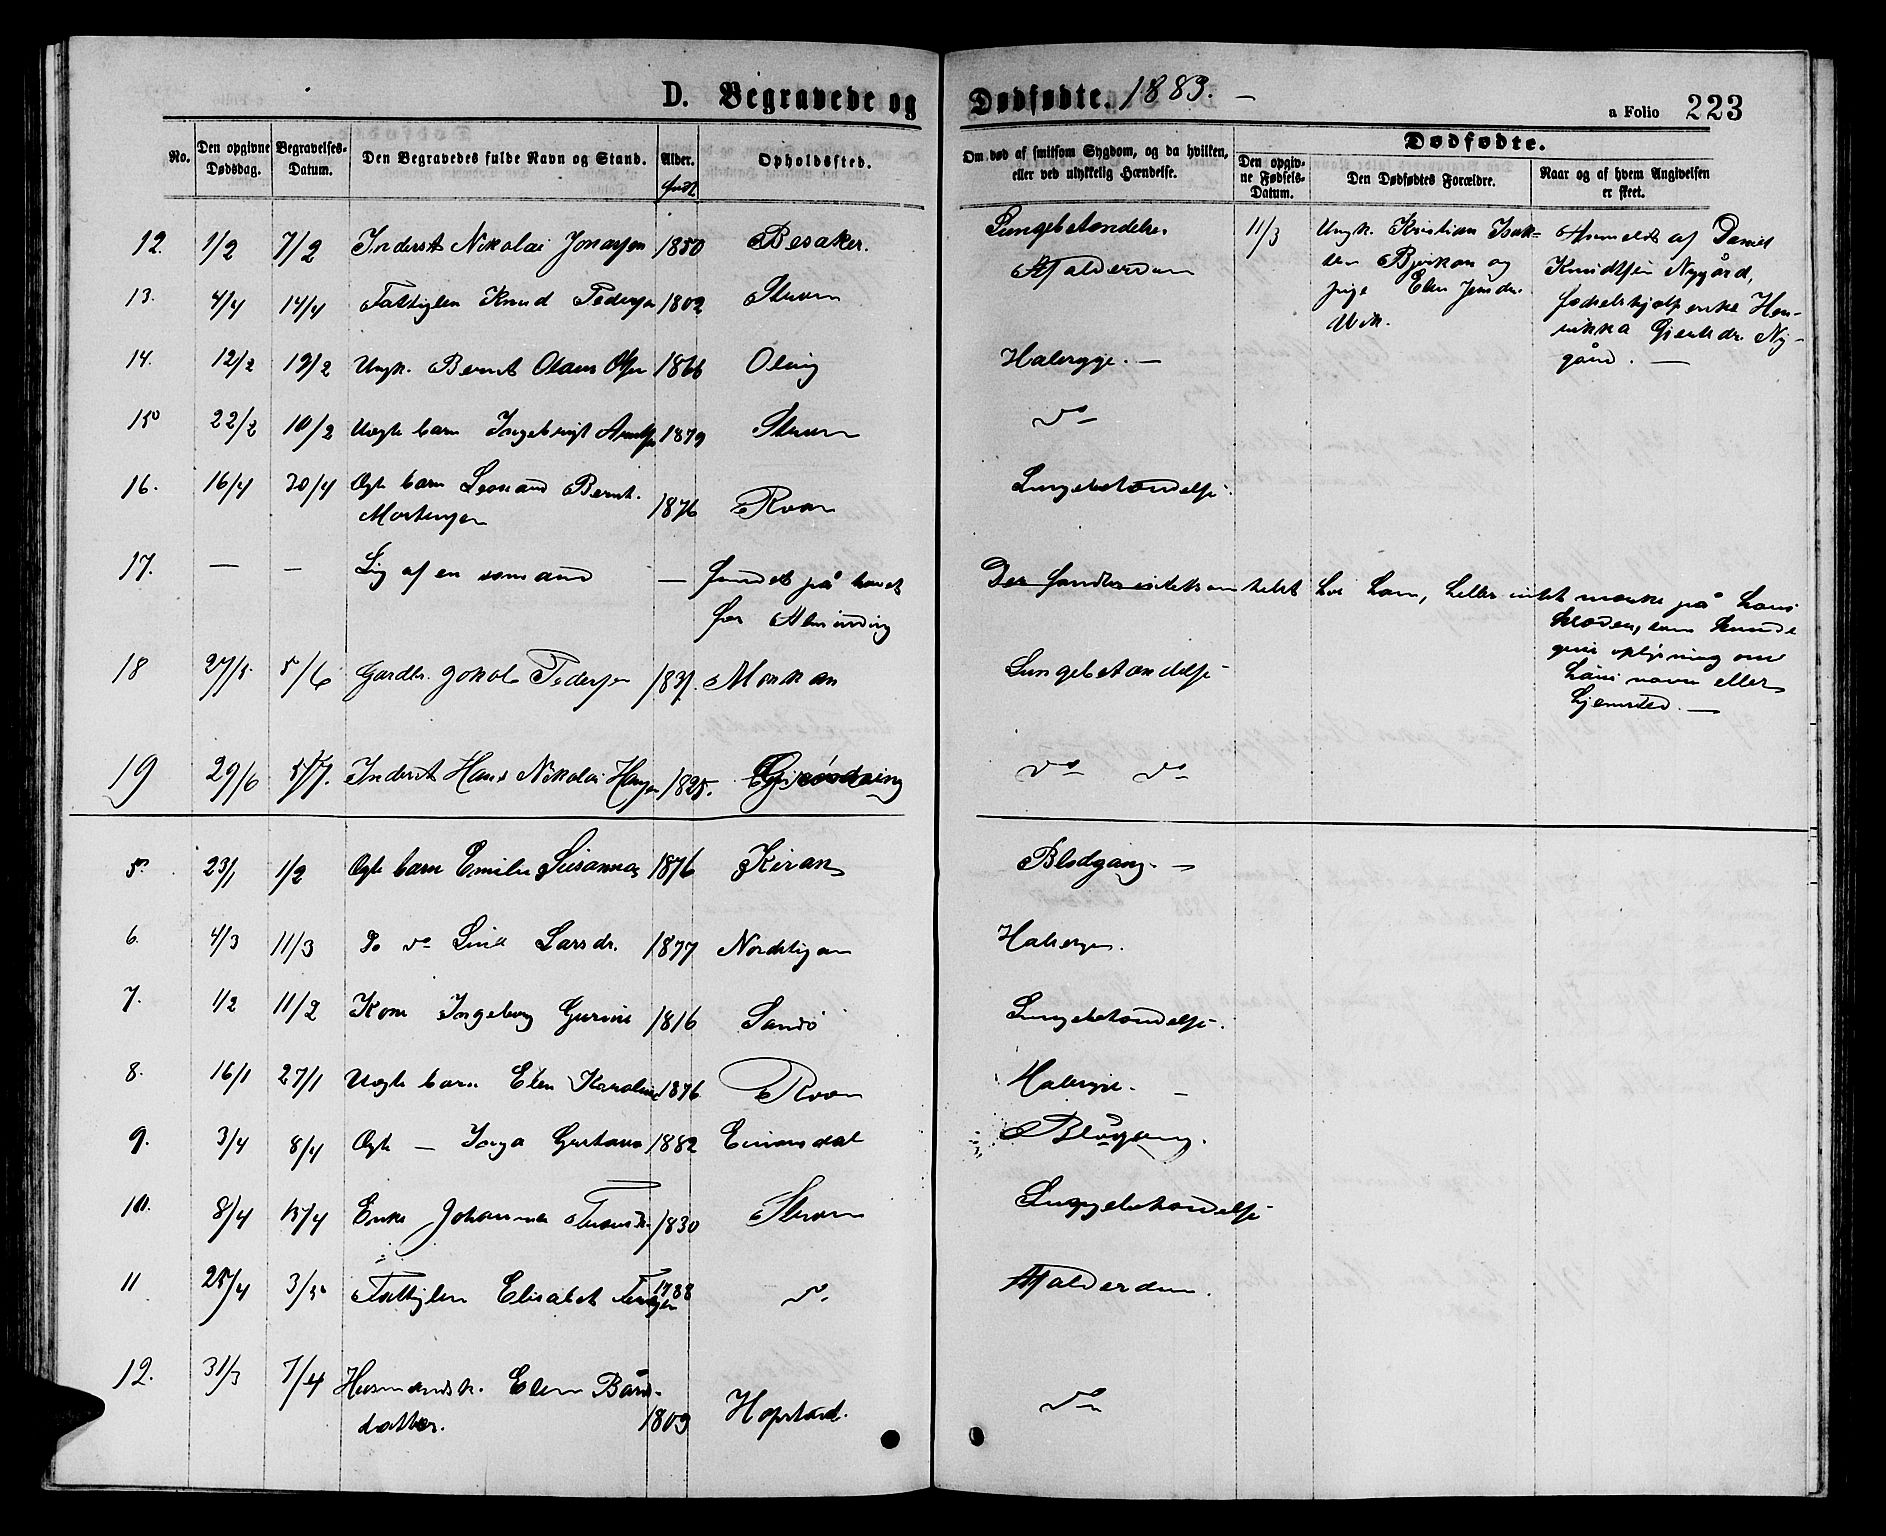 D. Begravede og Dødfødte. 1883. —
a Folio 223
No. Den opgivne Dødsdag. Begravelses-Datum. Den Begravedes fulde Navn og Stand. Alder. født Opholdssted. Om død af smitsom Sygdom, og da hvilken, eller ved ulykkelig Hændelse. Dødfødte. Den opgivne Fødsels-Datum. Den Dødfødtes Forældre. Naar og af hvem Angivelsen er skeet.
12. 1/2 7/2 Inderst Nikolai Jonassen 1850 Besaker. Lungebetændelse
11/3 Ungk. Kristian Isak-
sen Bjerkan og
pige Elen Jensdr.
Vik.
Anmeldt af Daniel
Knudtsen Nygård,
fødselshjelp enke Hen-
rikka Gjertsdr. Ny-
gård. —
13. 4/4 14/4 Fattiglem Knud Pedersen 1802 Struen Af alderdom
14. 12/2 19/2 Ungk. Bernt Olaus Olsen 1866 Oling Halesyge. —
15 22/2 10/2 Uægte barn Ingebrigt 1879 Struen do
16. 16/4 20/4 Ægte barn Leonard Bernt.
Mortensen 1876 Roan Lungebetændelse.
17. — — Lig af en sømand — fundet på havet
for Almending
Der fandtes intetsomhelst hos ham, heller intet mærke på hans
klæder, som kunde
give oplysning om
hans navn eller
hjemsted. —
18 27/5 5/6 Gardbr. Jakob Pedersen 1831. Monkan Lungebetændelse
19 29/6 5/7. Inderst Hans Nikolai Hansen 1825. do do
5 23/1 1/2 Ægte barn Emilie Susanna 1876 Kiran Blodgang. —
6. 4/3 11/3 Do do Lina Larsdr. 1877 Nordskjør Halesyge.
7. 1/2 11/2 Kone Ingeborg Gurine 1816 Sandø Lungebetændelse.
8. 16/1 27/1 Uægte barn Elen Karoline 1876 Roan Halesyge. —
9. 3/4 8/4 Ægte — Inga Gustava 1882 Einarsdal Blodgang.
10. 8/4 15/4 Enke Johanna 1830 Struen Lungebetændelse
11 25/4 3/5 Fattiglem Elisabet 1788 do Af alderdom.
12. 31/3 7/4 Husmandsk. Elen Bårds-
datter. 1809 Hopstad. do